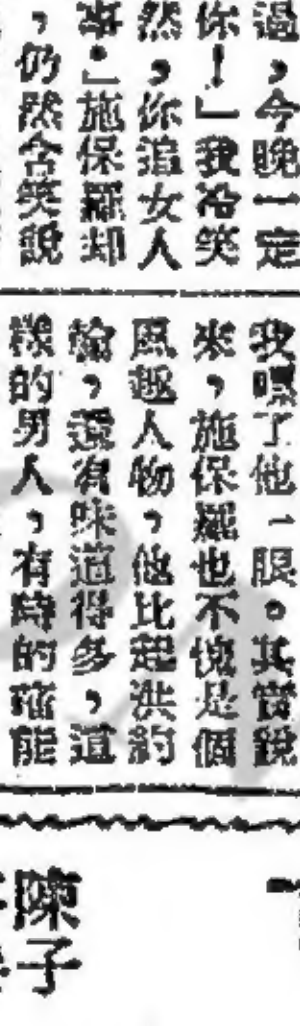 過，今晚一定
你！」我冷笑
然，你追女人
事。」施保羅却
，仍然含笑說
我嘿了他一眼。其實說
來，施保羅也不愧是個
風趣人物，他比起洪約
翰，還有味道得多，這
樣的男人，有時的確能
陳子